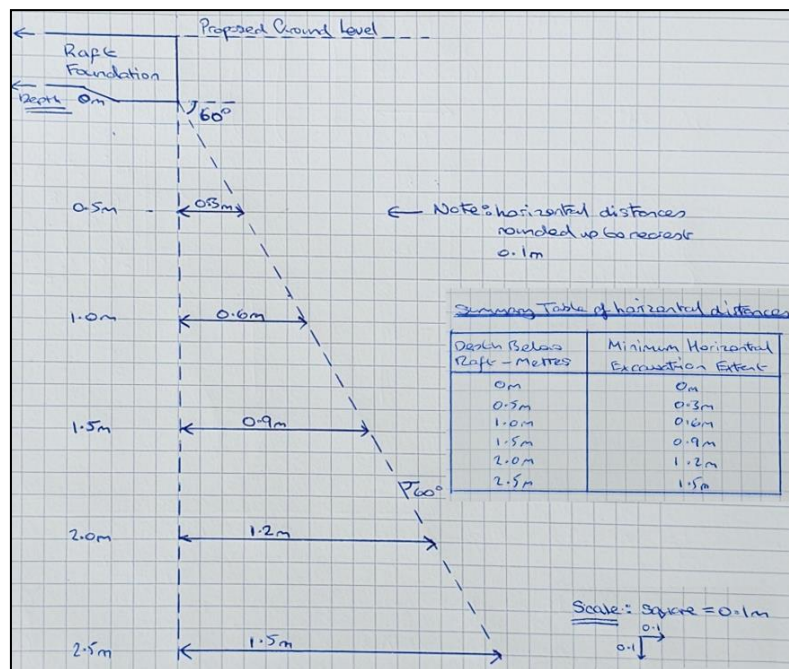 Proposed Ground Level
Raft
Foundation
Depth 0m
60°
0.5m
0.3m
← Note: horizontal distances
rounded up to nearest
0.1m
1.0m
0.6m
Summary Table of horizontal distances
Depth Below
Raft - Metres
Minimum Horizontal
Excavation Extent
0m 0m
0.5m 0.3m
1.0m 0.6m
1.5m 0.9m
2.0m 1.2m
2.5m 1.5m
1.5m
0.9m
60°
2.0m
1.2m
Scale: square = 0.1m
0.1
0.1
2.5m
1.5m